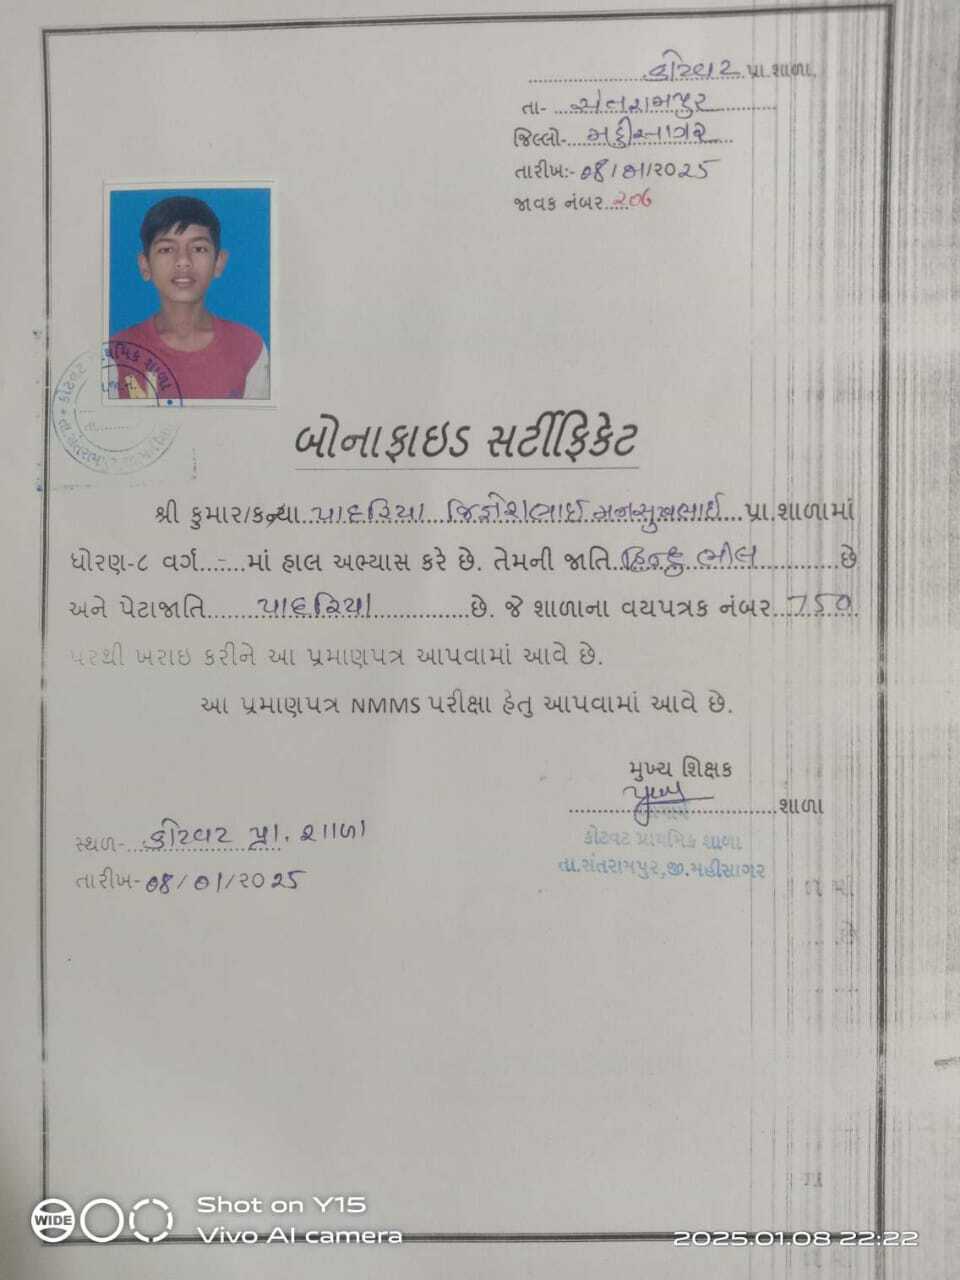 કોટવટ પ્રા.શાળા,
તા- સંતરામપુર
જિલ્લો- મહીસાગર
તારીખ:- 08/01/2025
જાવક નંબર 206
બોનાફાઇડ સર્ટીફિકેટ
શ્રી કુમાર/કન્યા પાદરિયા જિજ્ઞેશભાઈ મનસુખભાઈ પ્રા.શાળામાં
ધોરણ-૮ વર્ગ...-...માં હાલ અભ્યાસ કરે છે. તેમની જાતિ હિન્દુ ભીલ છે
અને પેટાજાતિ પાદરિયા છે. જે શાળાના વયપત્રક નંબર 750
પરથી ખરાઇ કરીને આ પ્રમાણપત્ર આપવામાં આવે છે.
આ પ્રમાણપત્ર NMMS પરીક્ષા હેતુ આપવામાં આવે છે.
મુખ્ય શિક્ષક
શાળા
કોટવટ પ્રાથમિક શાળા
તા.સંતરામપુર,જી.મહીસાગર
સ્થળ- કોટવટ પ્રા. શાળા
તારીખ- 08/01/2025
WIDE
Shot on Y15
Vivo AI camera
2025.01.08 22:22